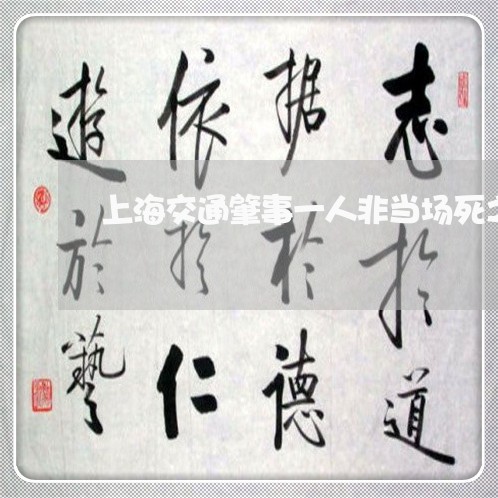 志於道
据於德
依於仁
遊於藝
上海交通肇事一人非当场死